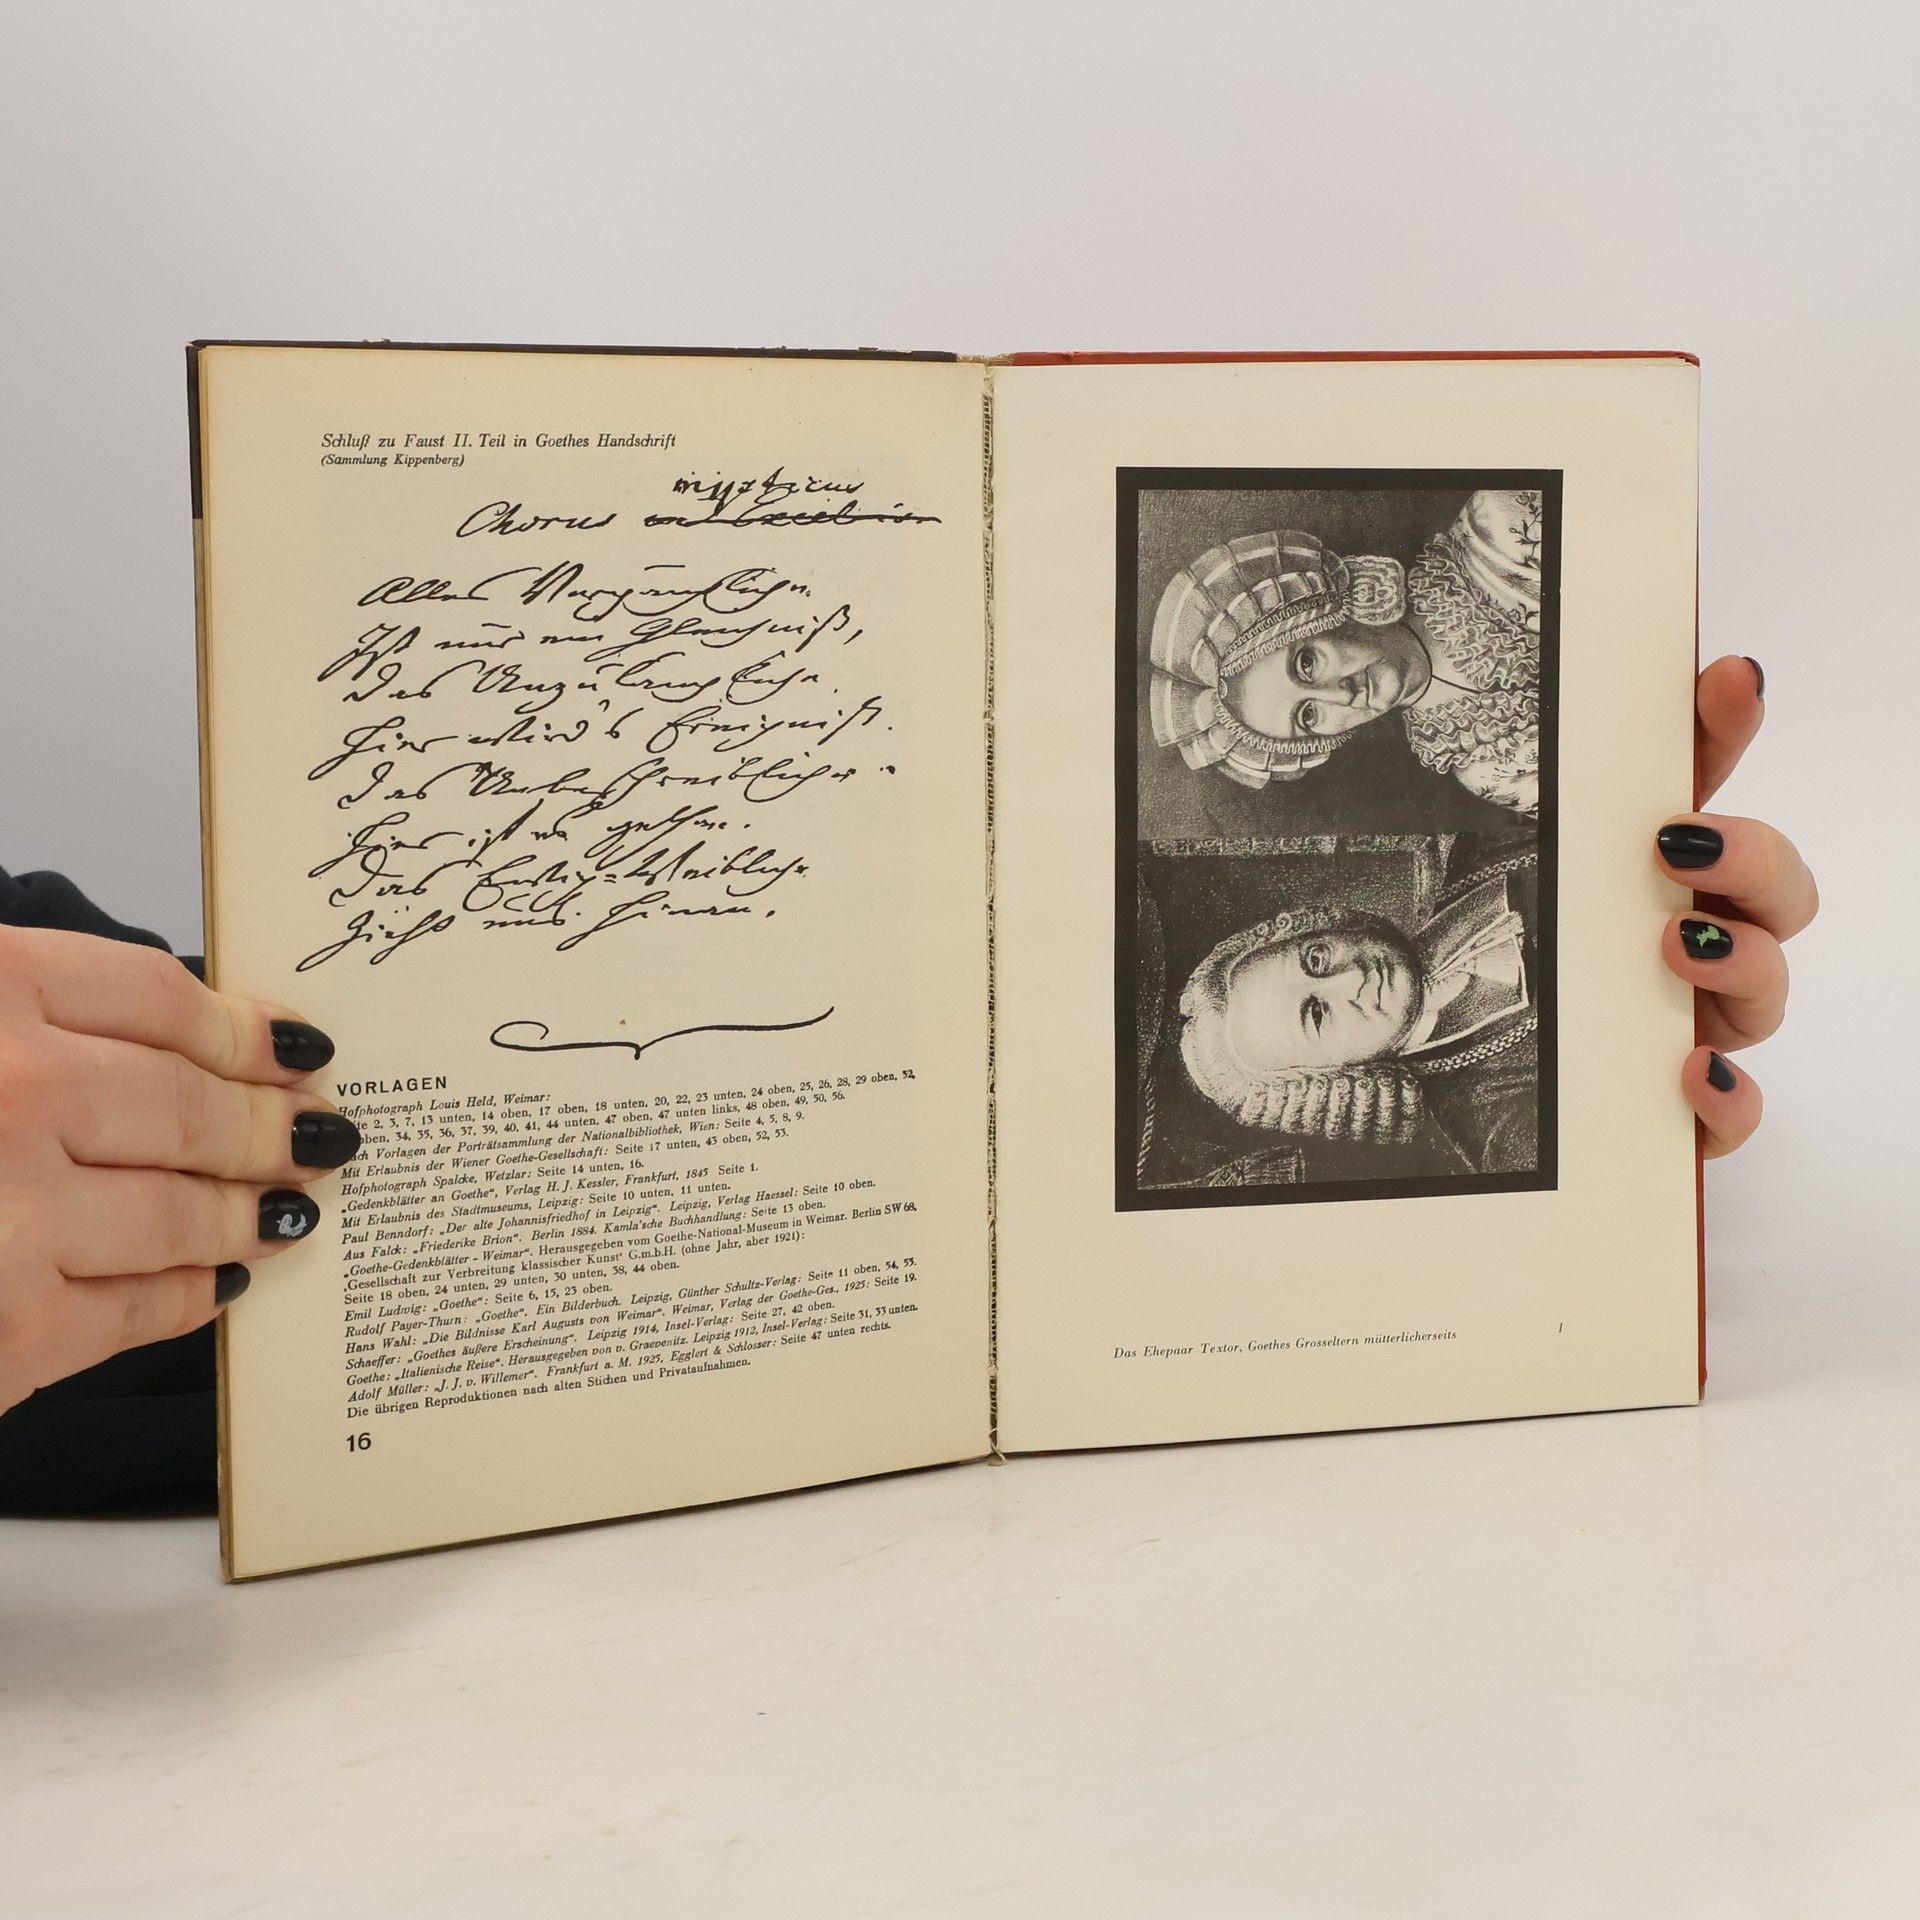 Schluß zu Faust II. Teil in Goethes Handschrift
(Sammlung Kippenberg)
mysticus
Chorus in Excelsis
Alles Vergängliche
Ist nur ein Gleichniß,
Das Unzulängliche
Hier wird's Ereigniß.
Das Unbeschreibliche
Hier ist es gethan.
Das Ewig=Weibliche
Zieht uns hinan.
VORLAGEN
Hofphotograph Louis Held, Weimar:
2, 3, 7, 13 unten, 14 oben, 17 oben, 18 unten, 20, 22, 23 unten, 24 oben, 25, 26, 28, 29 oben, 32,
oben, 34, 35, 36, 37, 39, 40, 41, 44 unten, 47 oben, 47 unten links, 48 oben, 49, 50, 56.
Vorlagen der Porträtsammlung der Nationalbibliothek, Wien: Seite 4, 5, 8, 9.
Mit Erlaubnis der Wiener Goethe-Gesellschaft: Seite 17 unten, 43 oben, 52, 53.
Hofphotograph Spalcke, Wetzlar: Seite 14 unten, 16.
„Gedenkblätter an Goethe“, Verlag H. J. Kessler, Frankfurt, 1845 Seite 1.
Mit Erlaubnis des Stadtmuseums, Leipzig: Seite 10 unten, 11 unten.
Paul Benndorf: „Der alte Johannisfriedhof in Leipzig“. Leipzig, Verlag Haessel: Seite 10 oben.
Aus Falck: „Friederike Brion“. Berlin 1884. Kamla'sche Buchhandlung: Seite 13 oben.
„Goethe-Gedenkblätter - Weimar“. Herausgegeben vom Goethe-National-Museum in Weimar. Berlin SW 68,
‚Gesellschaft zur Verbreitung klassischer Kunst‘ G.m.b.H. (ohne Jahr, aber 1921):
Seite 18 oben, 24 unten, 29 unten, 30 unten, 38, 44 oben.
Emil Ludwig: „Goethe“: Seite 6, 15, 23 oben.
Rudolf Payer-Thurn: „Goethe“. Ein Bilderbuch. Leipzig, Günther Schultz-Verlag: Seite 11 oben, 54, 55.
Hans Wahl: „Die Bildnisse Karl Augusts von Weimar“. Weimar, Verlag der Goethe-Ges., 1925: Seite 19.
Schaeffer: „Goethes äußere Erscheinung“. Leipzig 1914, Insel-Verlag: Seite 27, 42 oben.
Goethe: „Italienische Reise“. Herausgegeben von v. Graevenitz. Leipzig 1912, Insel-Verlag: Seite 31, 33 unten.
Adolf Müller: „J. J. v. Willemer“. Frankfurt a. M. 1925, Egglert & Schlosser: Seite 47 unten rechts.
Die übrigen Reproduktionen nach alten Stichen und Privataufnahmen.
16
Das Ehepaar Textor, Goethes Grosseltern mütterlicherseits
1